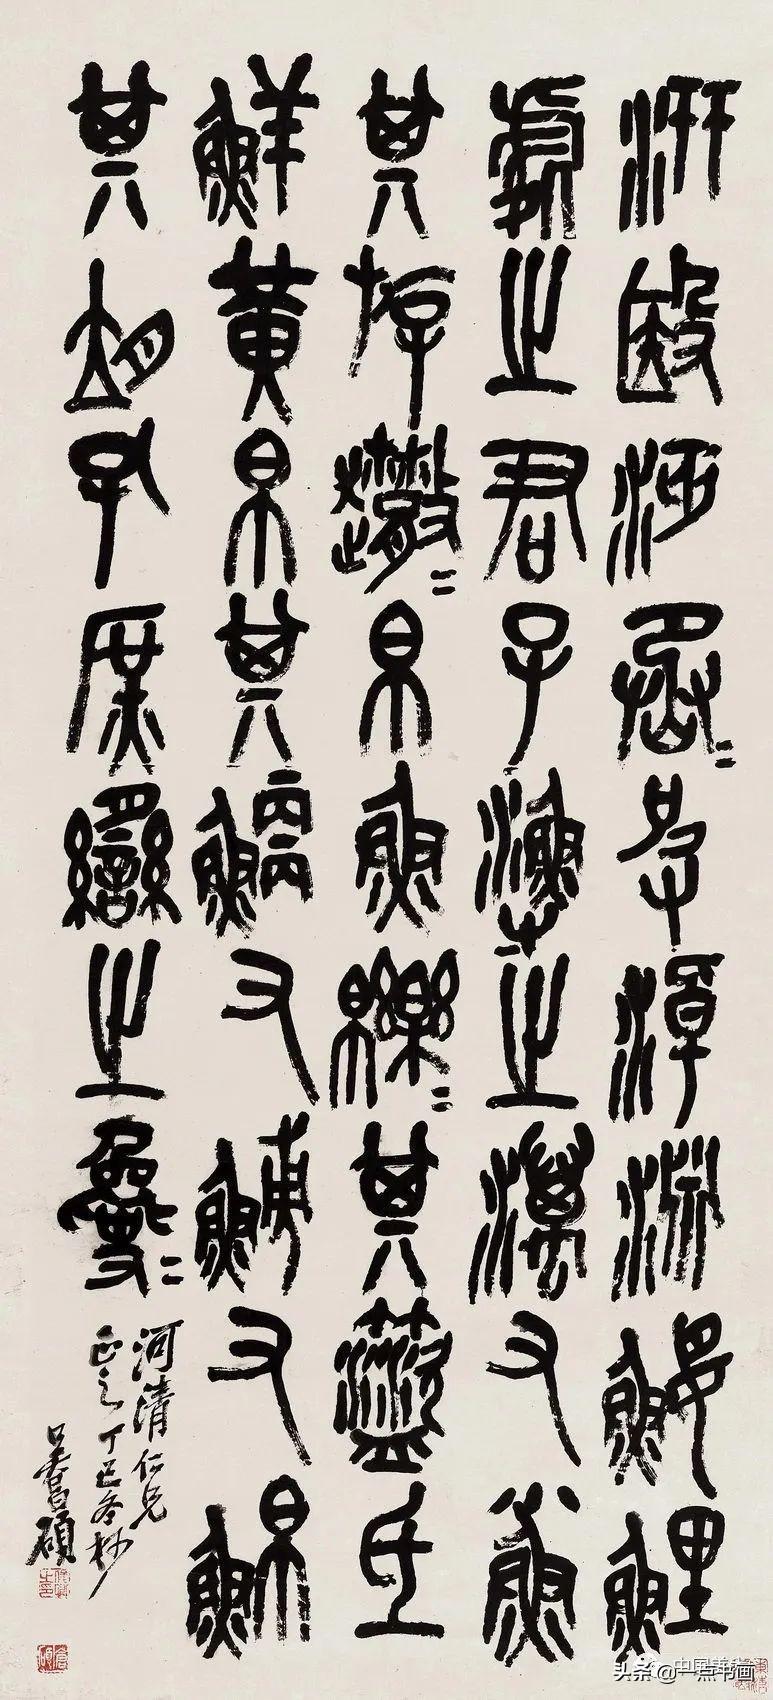 汧殹沔丞〻皮淖淵鰋鯉
處之君子漁之澫又小魚
其斿帛魚皪〻其盜氐
鮮黃帛其鯾又鱄又鮊
其孔庶臠之
河清仁兄
正之丁巳冬杪
吳昌碩
俊卿之印
倉碩
头条@一点书画